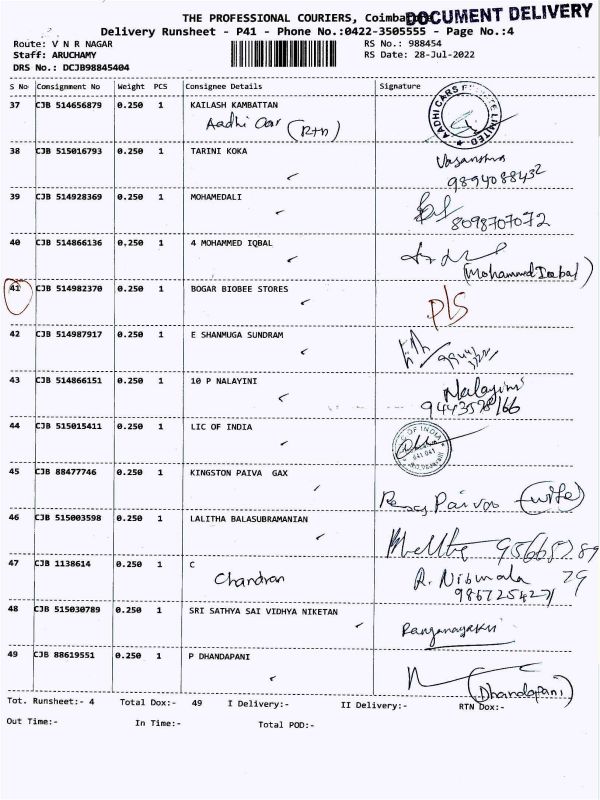 THE PROFESSIONAL COURIERS, Coimbatore
DOCUMENT DELIVERY
Delivery Runsheet - P41 - Phone No.:0422-3505555 - Page No.:4
Route: V N R NAGAR RS No.: 988454
Staff: ARUCHAMY RS Date: 28-Jul-2022
DRS No.: DCJB98845404
S No Consignment No Weight PCS Consignee Details Signature
37 CJB 514656879 0.250 1 KAILASH KAMBATTAN
Aadhi Car (Rtn)
AADHI CARS PRIVATE LIMITED
38 CJB 515016793 0.250 1 TARINI KOKA
9894088432
39 CJB 514928369 0.250 1 MOHAMEDALI
8098707072
40 CJB 514866136 0.250 1 4 MOHAMMED IQBAL
(Mohammed Iqbal)
41 CJB 514982370 0.250 1 BOGAR BIOBEE STORES
P/S
42 CJB 514987917 0.250 1 E SHANMUGA SUNDRAM
43 CJB 514866151 0.250 1 10 P NALAYINI
Nalayini
44 CJB 515015411 0.250 1 LIC OF INDIA
OF INDIA
641 041
45 CJB 88477746 0.250 1 KINGSTON PAIVA GAX
Paivaa (wife)
46 CJB 515003598 0.250 1 LALITHA BALASUBRAMANIAN
47 CJB 1138614 0.250 1 C
Chandran
R. Nirmala
48 CJB 515030789 0.250 1 SRI SATHYA SAI VIDHYA NIKETAN
Ranganayaki
49 CJB 88619551 0.250 1 P DHANDAPANI
(Dhandapani)
Tot. Runsheet:- 4 Total Dox:- 49 I Delivery:- II Delivery:- RTN Dox:-
Out Time:- In Time:- Total POD:-